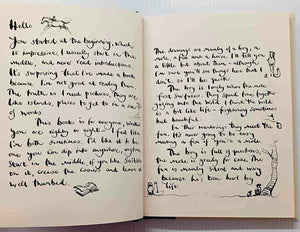 Hello
You started at the beginning, which
is impressive. I usually start in the
middle, and never read introductions.
It's surprising that I've made a book
because I'm not good at reading them.
The truth is I need pictures, they are
like islands, places to get to in a sea
of words.
This book is for everyone, whether
you are eighty or eight. I feel like
I'm both sometimes. I'd like it to be
one you can dip into anywhere, anytime.
Start in the middle, if you like. Scribble
on it, crease the corners and leave it
well thumbed.
The drawings are mainly of a boy, a
mole, a fox and a horse. I'll tell you
a little bit about them – although
I'm sure you'll see things in them that I
don't, so I'll be quick.
The boy is lonely when the mole
first surfaces. They spend time together
gazing into the wild. I think the wild
is a bit like life – frightening sometimes
but beautiful.
In their wanderings they meet the
fox. It's never going to be easy
meeting a fox if you're a mole.
The boy is full of questions,
the mole is greedy for cake. The
fox is mainly silent and wary
because he's been hurt by
life.